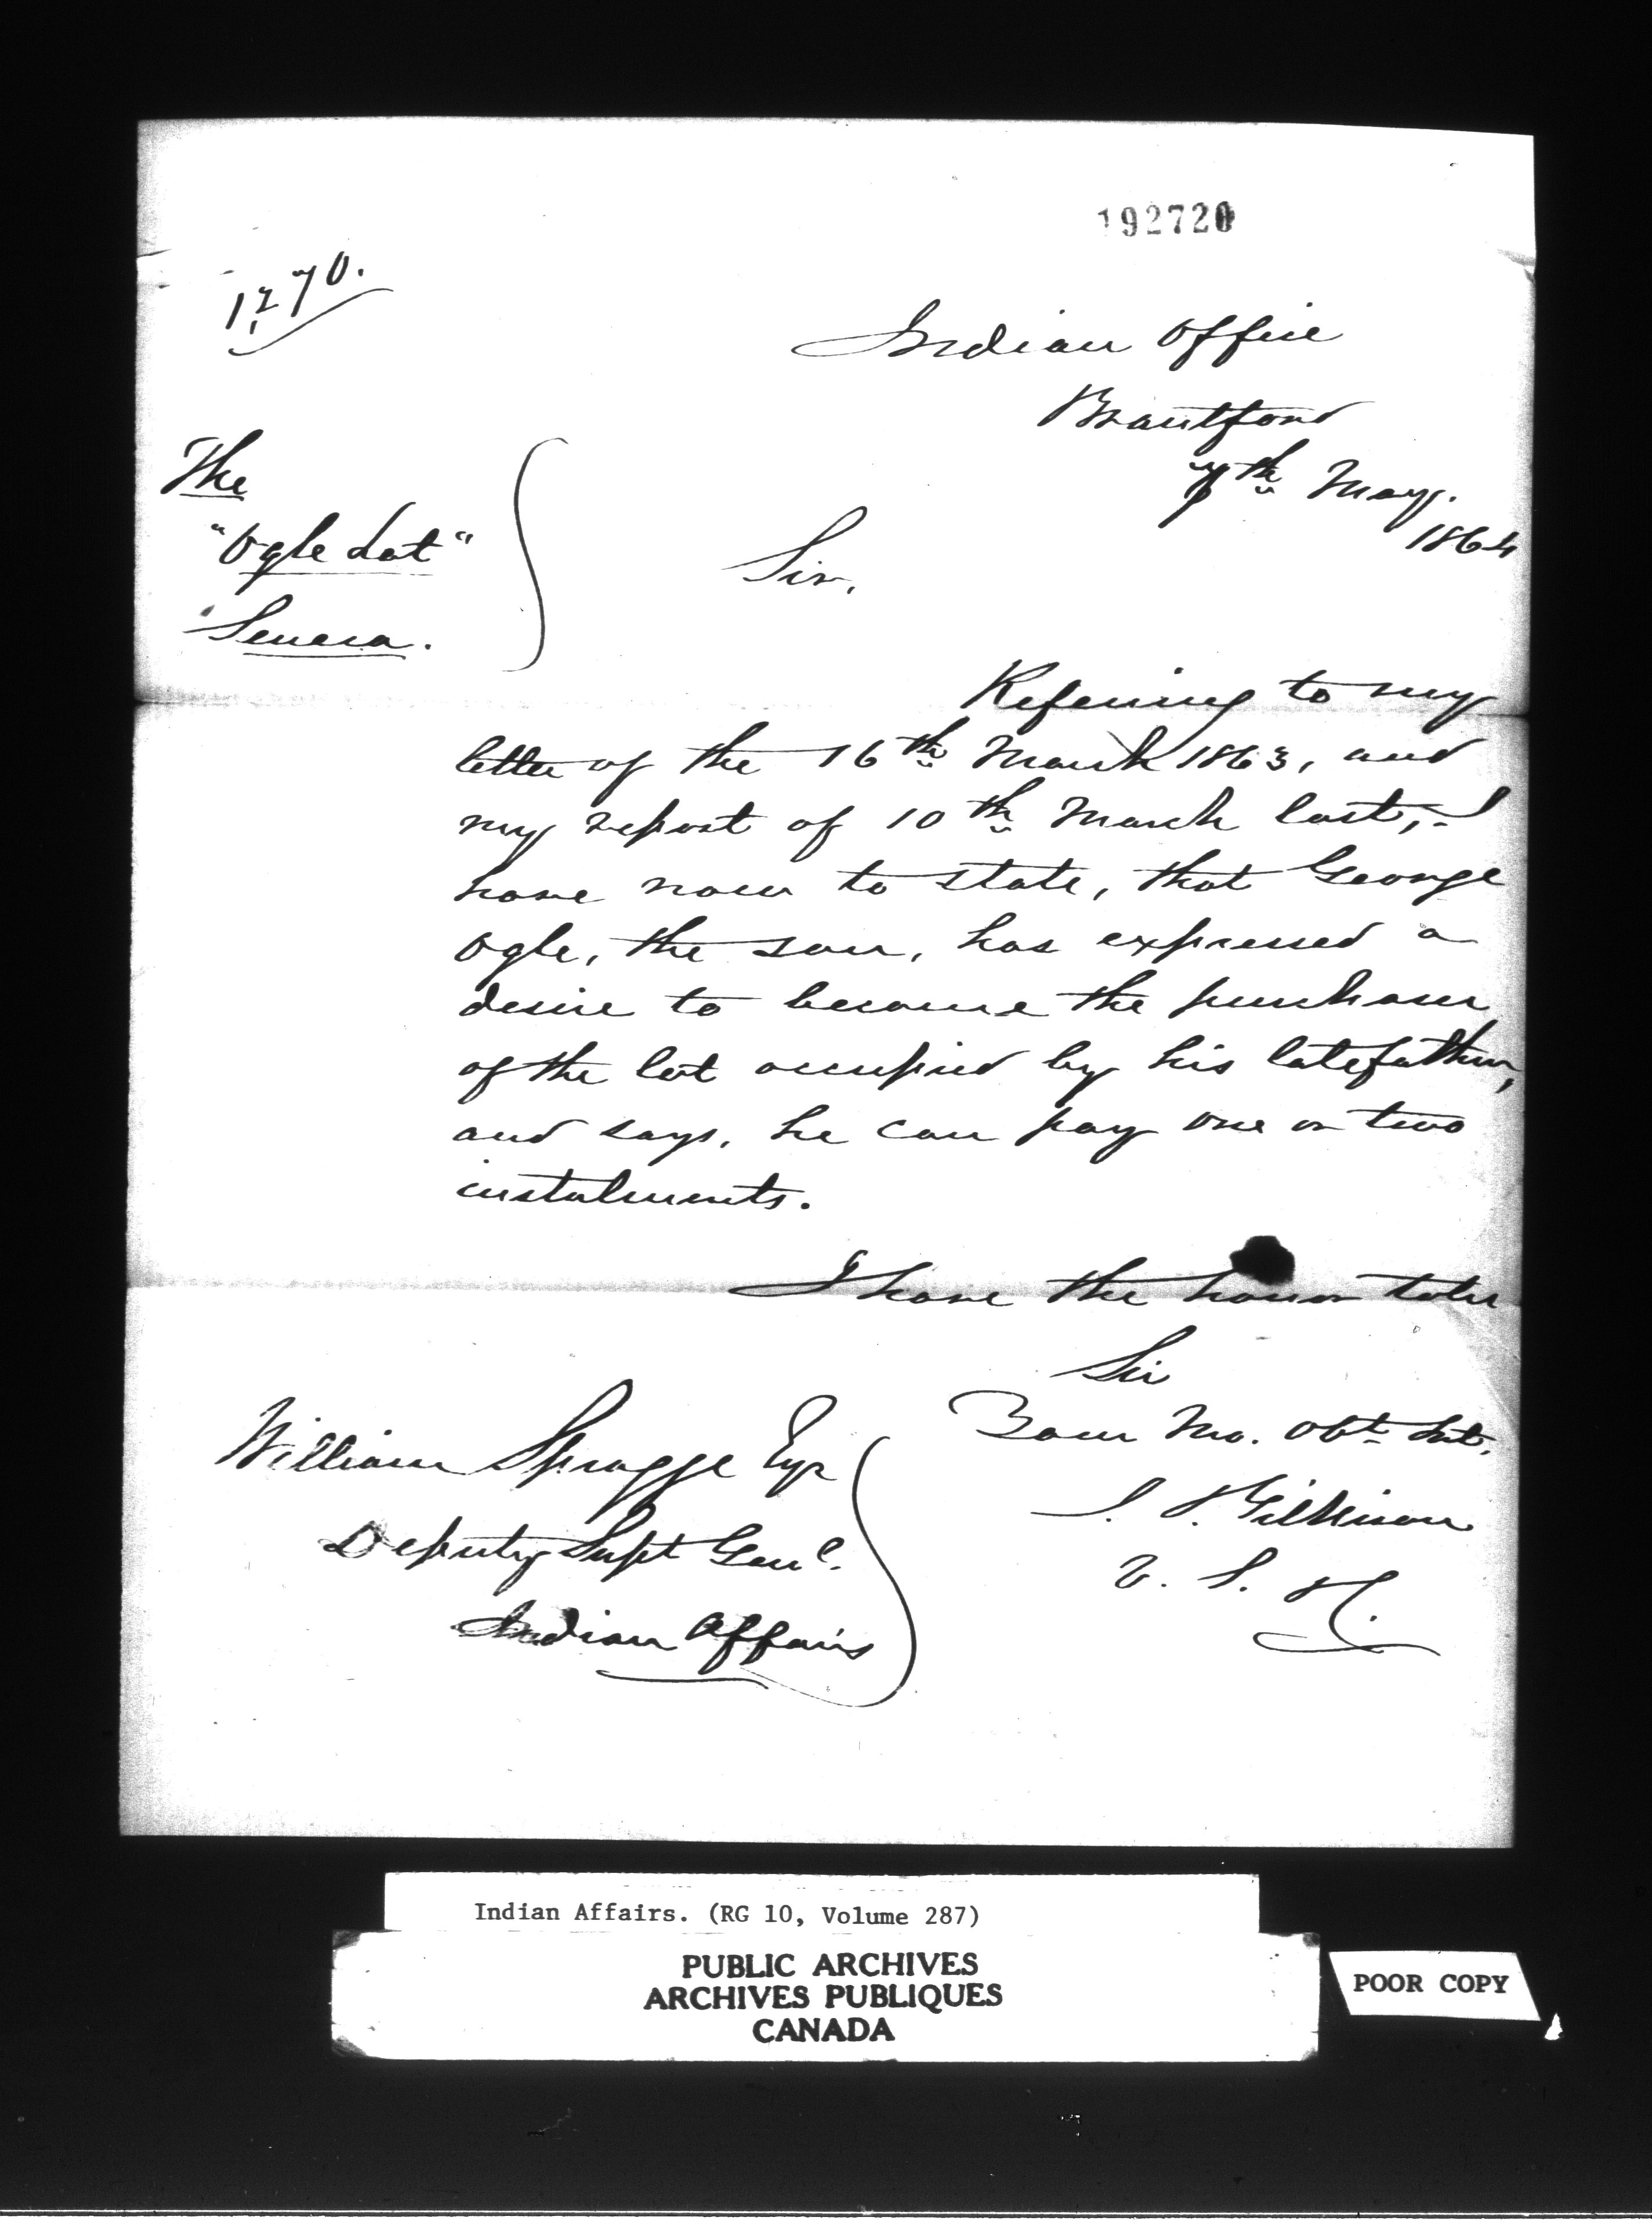 192720
1270.
Indian Office
Brantford
7th May.
1864
The
"Ogle Lot"
Seneca.
Sir,
Referring to my
letter of the 16th March 1863, and
my report of 10th March last, I
have now to state, that George
Ogle, the son, has expressed a
desire to become the purchaser
of the lot occupied by his late father,
and says, he can pay one or two
instalments.
I have the honor to be
Sir
Your Mo. Obt Svt.
J. T. Gilkison
V. S. I.
William Spragge Esqr
Deputy Supt Genl.
Indian Affairs
Indian Affairs. (RG 10, Volume 287)
PUBLIC ARCHIVES
ARCHIVES PUBLIQUES
CANADA
POOR COPY